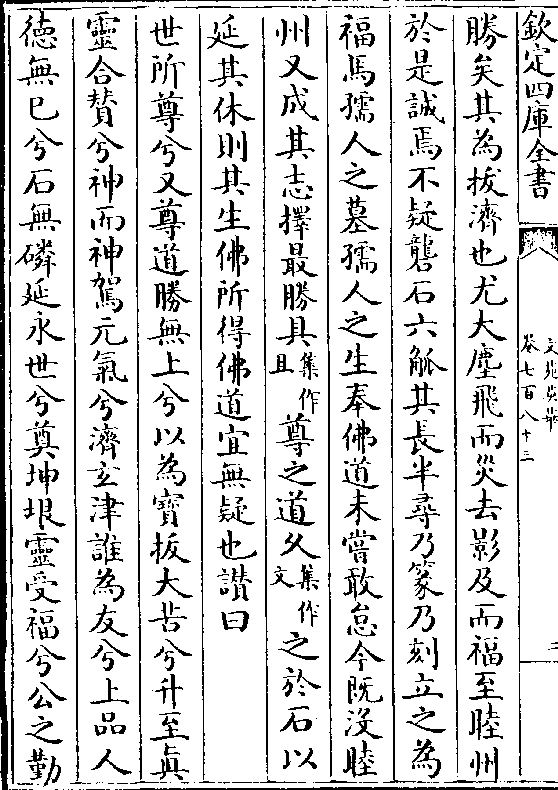 欽定四庫全書
文苑英華
卷七百八十三
勝矣其為拔濟也尤大塵飛而災去影及而福至睦州
於是誠焉不疑礱石六觚其長半尋乃篆乃刻立之為
福馬孺人之墓孺人之生奉佛道未嘗敢怠今既没睦
州又成其志擇最勝具集作且尊之道久集作文之於石以
延其休則其生佛所得佛道宜無疑也讃曰
世所尊兮又尊道勝無上兮以為寳拔大苦兮升至真
靈合賛兮神而神駕元氣兮濟玄津誰為友兮上品人
徳無已兮石無磷延永世兮奠坤垠靈受福兮公之勤